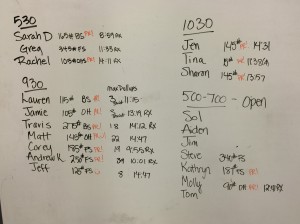 530
Sarah D 165# BS PR! 8:59 RX
Greg 345# FS 11:33 RX
Rachel 105# OH PR! 14:11 RX
930 max Dollars
Lauren 115# BS PR! 3 11:15
Jamie 105# OH PR! 5 13:19 RX
Travis 275# BS PR! 18 14:12 RX
Matt 145# OH 22 14:47
Corey 185# FS 19 9:55 RX
Andrew K 250# FS PR! 39 10:01 RX
Jeff 125# 8 14:47
1030
Jen 145# PR! 14:31
Tina
Sharon 145# 13:57
500-700 - Open
Sol
Aiden
Jim
Steve 340# FS
Kathryn 187# FS PR!
Molly 95# OH PR! 12:10 RX
Tom